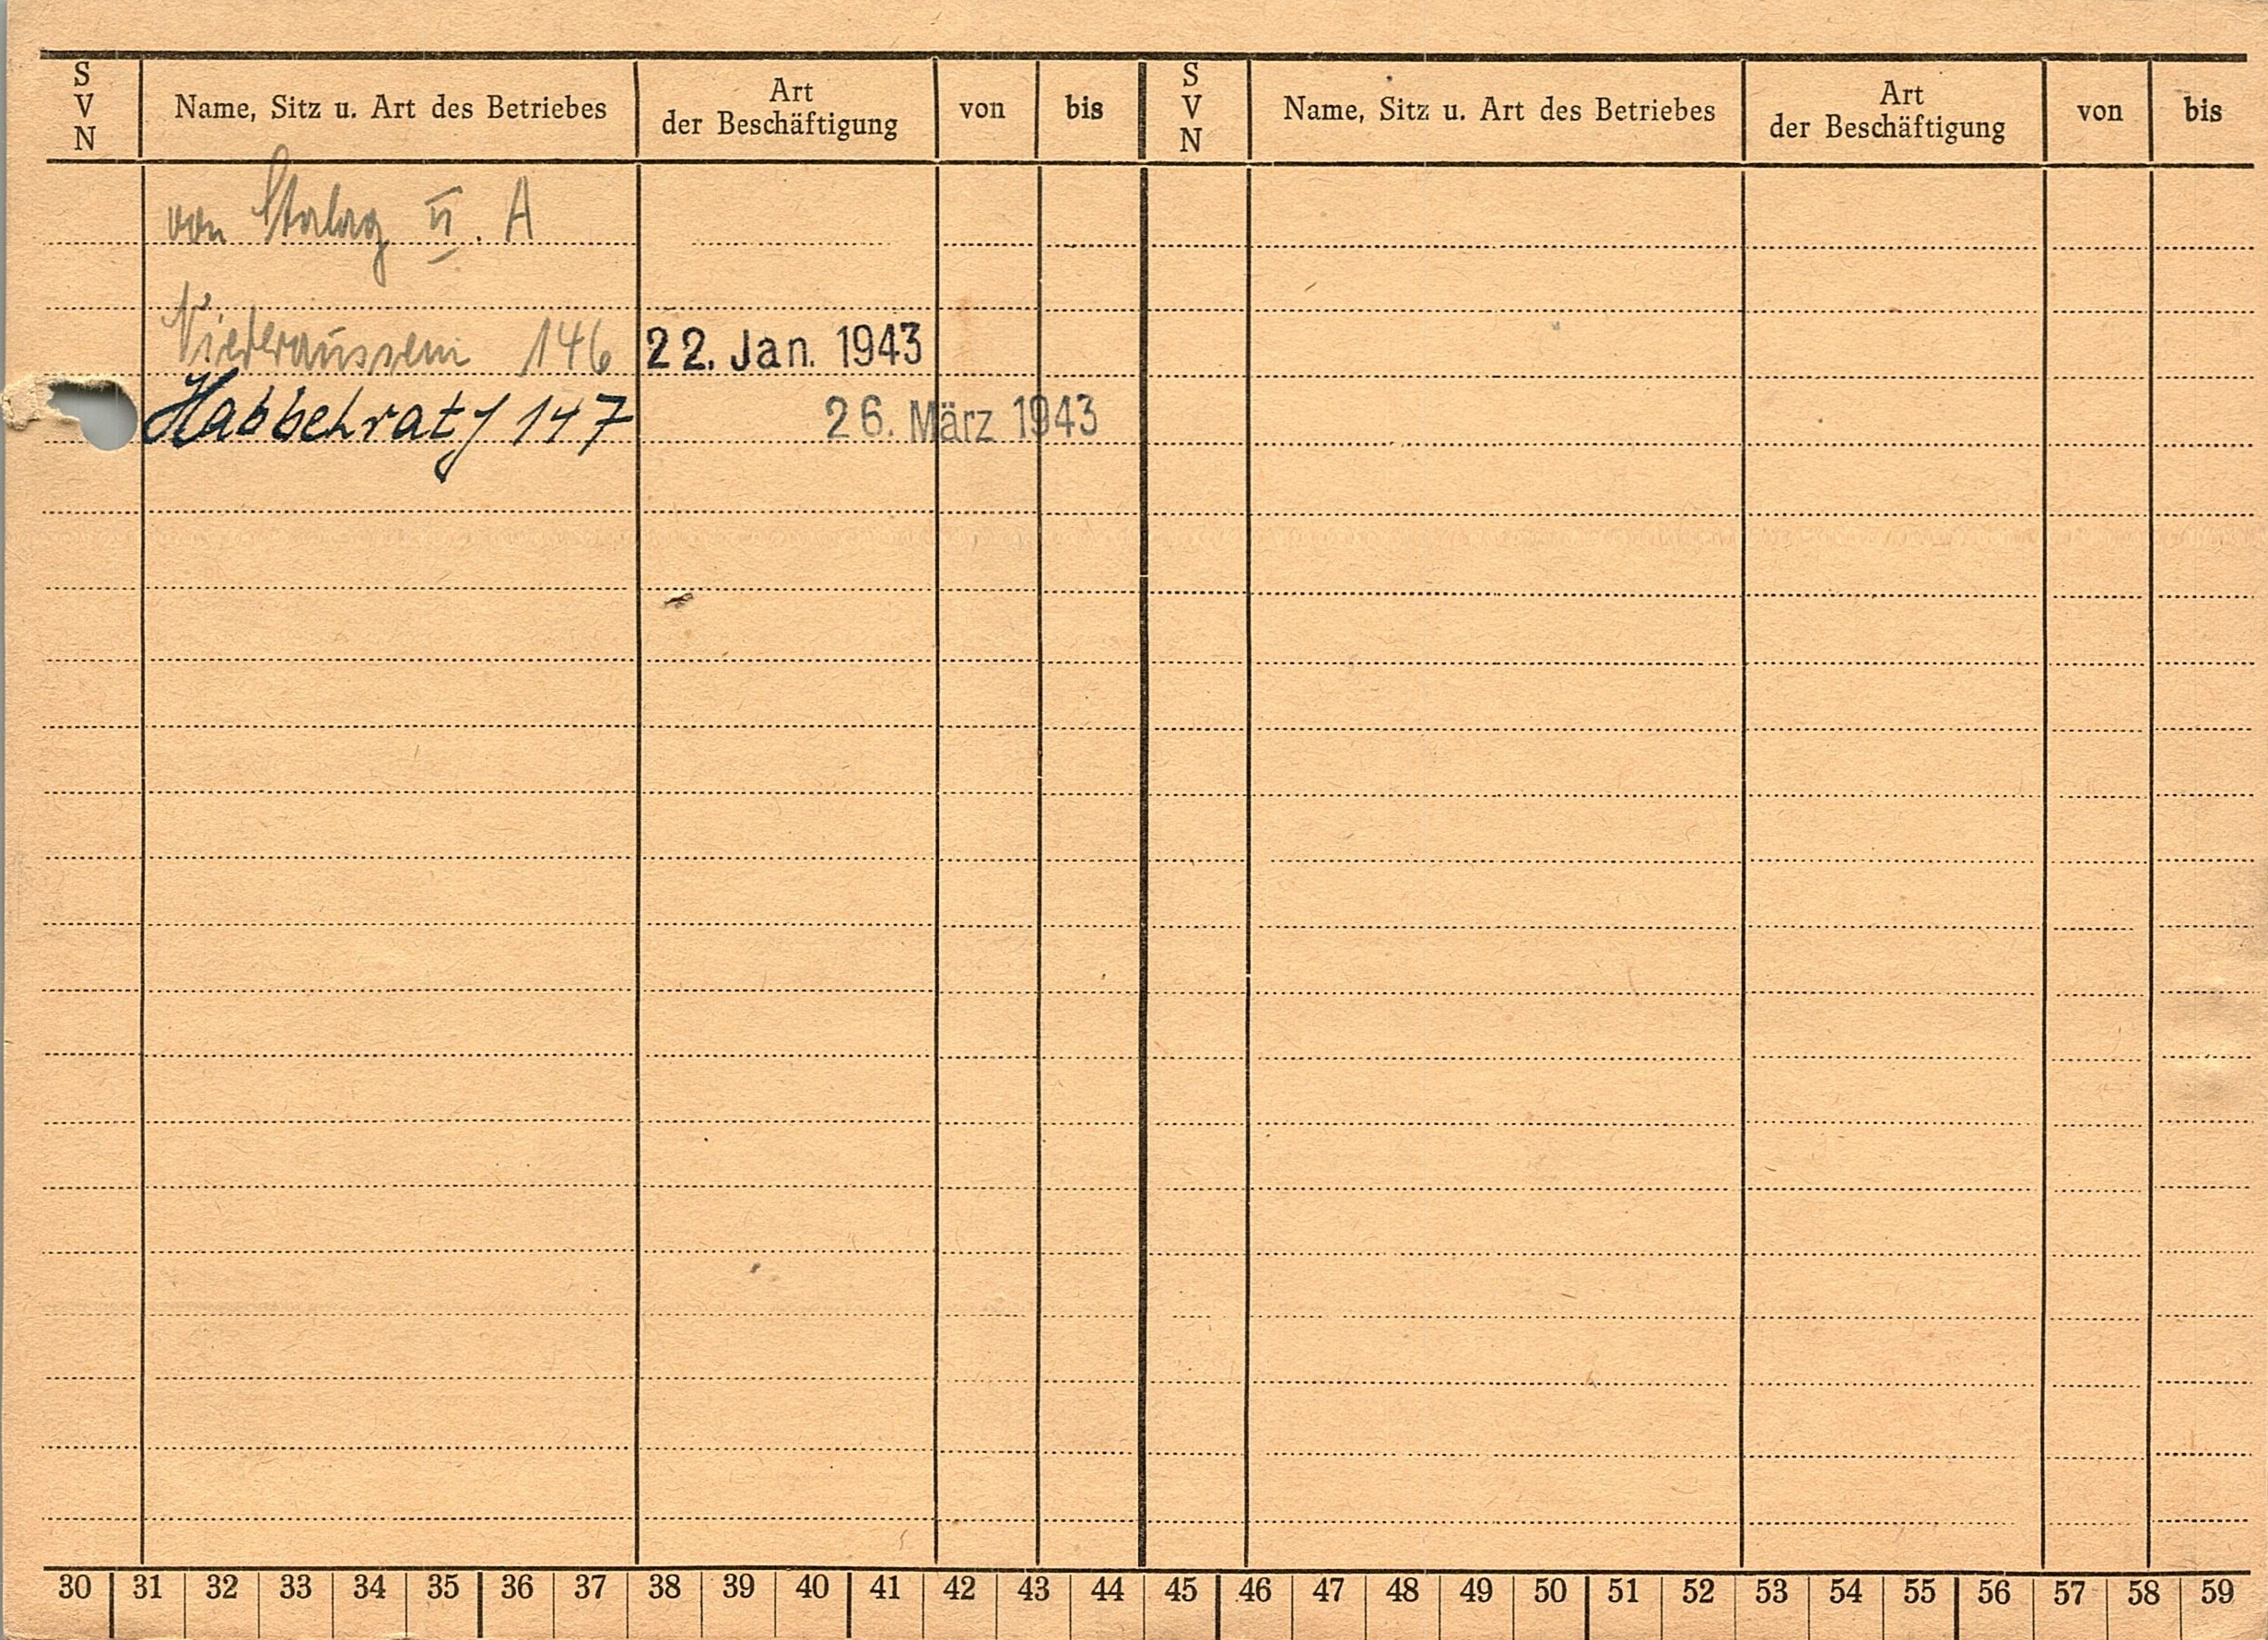 S V N Name, Sitz u. Art des Betriebes Art der Beschäftigung von bis S V N Name, Sitz u. Art des Betriebes Art der Beschäftigung von bis
von Stalag II. A
Niederaussem 146 22. Jan. 1943
Habbelrath 147 26. März 1943
30 31 32 33 34 35 36 37 38 39 40 41 42 43 44 45 46 47 48 49 50 51 52 53 54 55 56 57 58 59